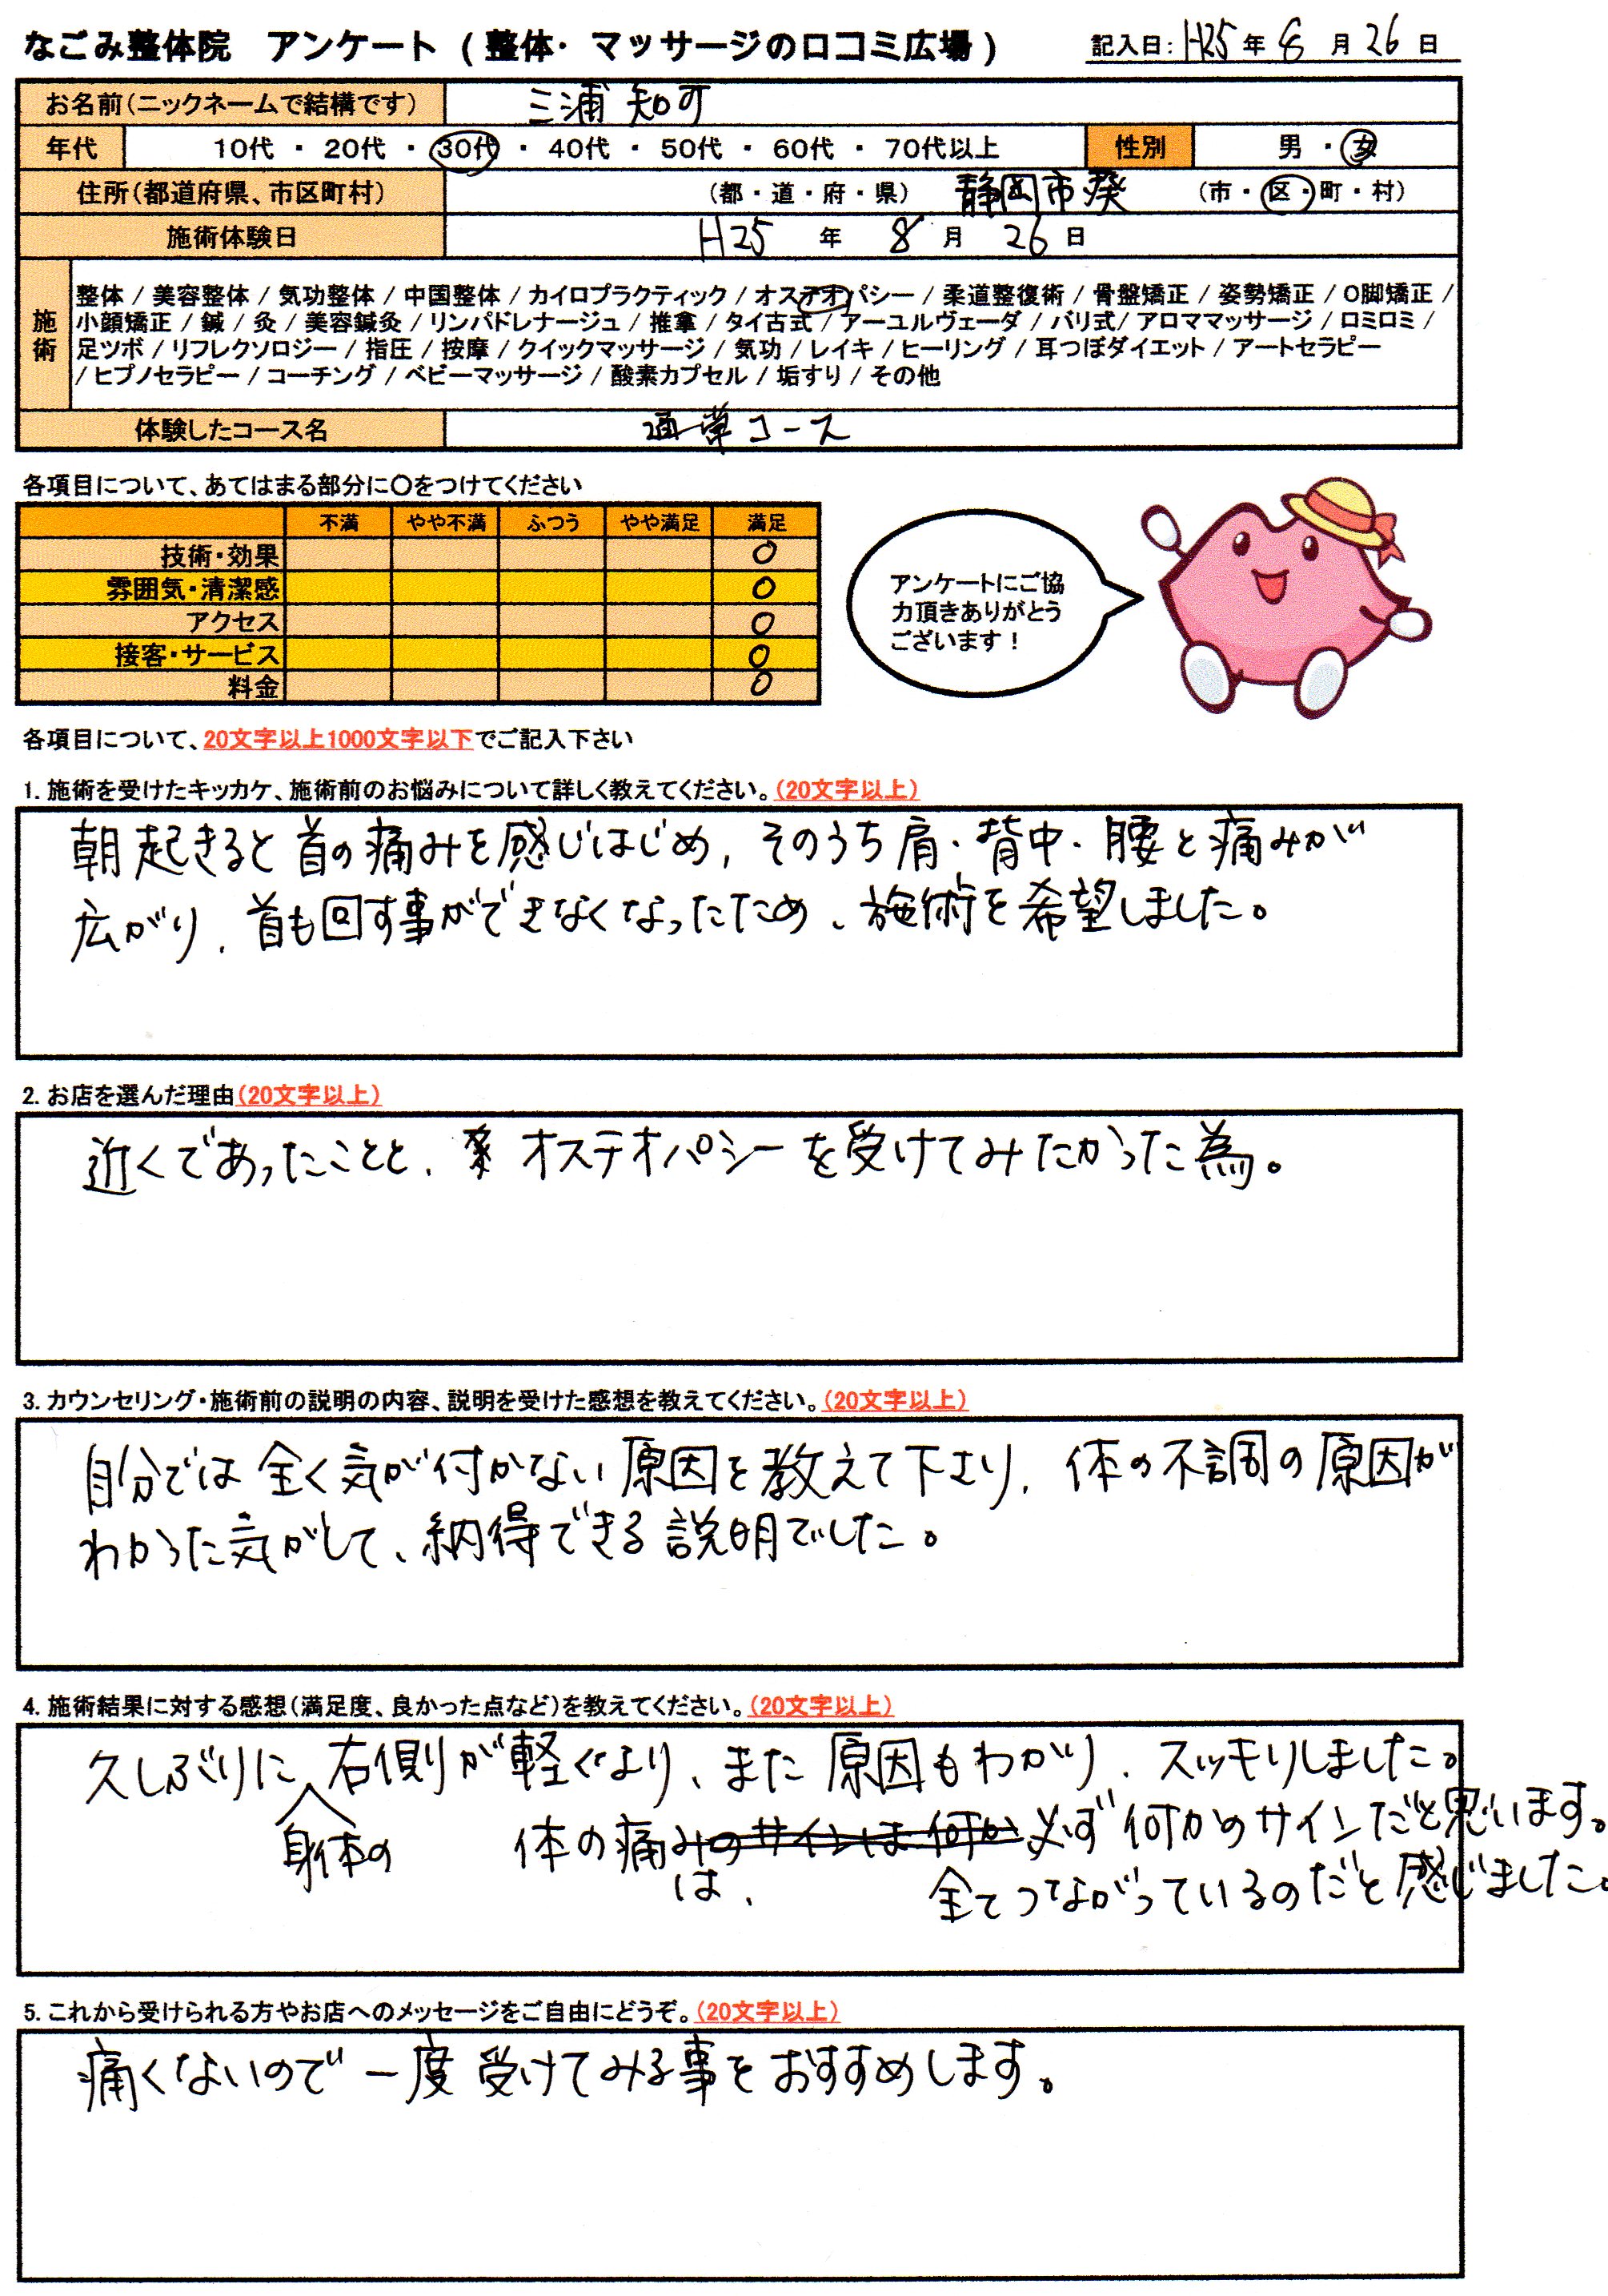 なごみ整体院 アンケート (整体・マッサージの口コミ広場) 記入日: H25 年 8 月 26 日
お名前(ニックネームで結構です) 三浦 知可
年代 10代 ・ 20代 ・ 30代 ・ 40代 ・ 50代 ・ 60代 ・ 70代以上 性別 男 ・ 女
住所(都道府県、市区町村) (都・道・府・県) 静岡市葵 (市・区・町・村)
施術体験日 H25 年 8 月 26 日
施術
整体 / 美容整体 / 気功整体 / 中国整体 / カイロプラクティック / オステオパシー / 柔道整復術 / 骨盤矯正 / 姿勢矯正 / O脚矯正 /
小顔矯正 / 鍼 / 灸 / 美容鍼灸 / リンパドレナージュ / 推拿 / タイ古式 / アーユルヴェーダ / バリ式 / アロママッサージ / ロミロミ /
足ツボ / リフレクソロジー / 指圧 / 按摩 / クイックマッサージ / 気功 / レイキ / ヒーリング / 耳つぼダイエット / アートセラピー
/ ヒプノセラピー / コーチング / ベビーマッサージ / 酸素カプセル / 垢すり / その他
体験したコース名 通常コース
各項目について、あてはまる部分に○をつけてください
不満 やや不満 ふつう やや満足 満足
技術・効果 ○
雰囲気・清潔感 ○
アクセス ○
接客・サービス ○
料金 ○
アンケートにご協
力頂きありがとう
ございます!
各項目について、20文字以上1000文字以下でご記入下さい
1. 施術を受けたキッカケ、施術前のお悩みについて詳しく教えてください。(20文字以上)
朝起きると首の痛みを感じはじめ, そのうち肩・背中・腰と痛みが
広がり、首も回す事ができなくなったため、施術を希望しました。
2. お店を選んだ理由(20文字以上)
近くであったことと、オステオパシーを受けてみたかった為。
3. カウンセリング・施術前の説明の内容、説明を受けた感想を教えてください。(20文字以上)
自分では全く気が付かない原因を教えて下さり、体の不調の原因が
わかった気がして、納得できる説明でした。
4. 施術結果に対する感想(満足度、良かった点など)を教えてください。(20文字以上)
久しぶりに右側が軽くなり、また原因もわかり、スッキリしました。
身体の 体の痛みのサインは何か必ず何かのサインだと思います。
は、 全てつながっているのだと感じました。
5. これから受けられる方やお店へのメッセージをご自由にどうぞ。(20文字以上)
痛くないので一度受けてみる事をおすすめします。